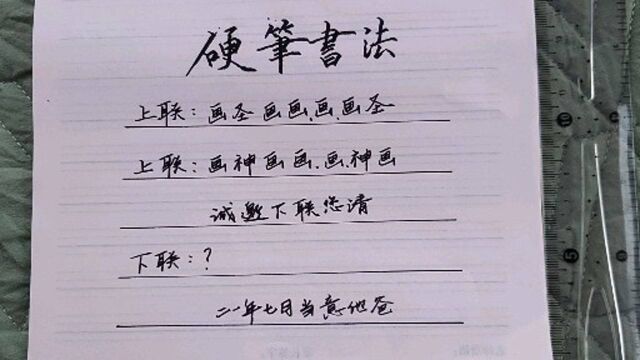 硬筆書法
上联：画圣画画、画、画圣
上联：画神画画、画、神画
诚邀下联您请
下联：？
二一年七日当意他爸